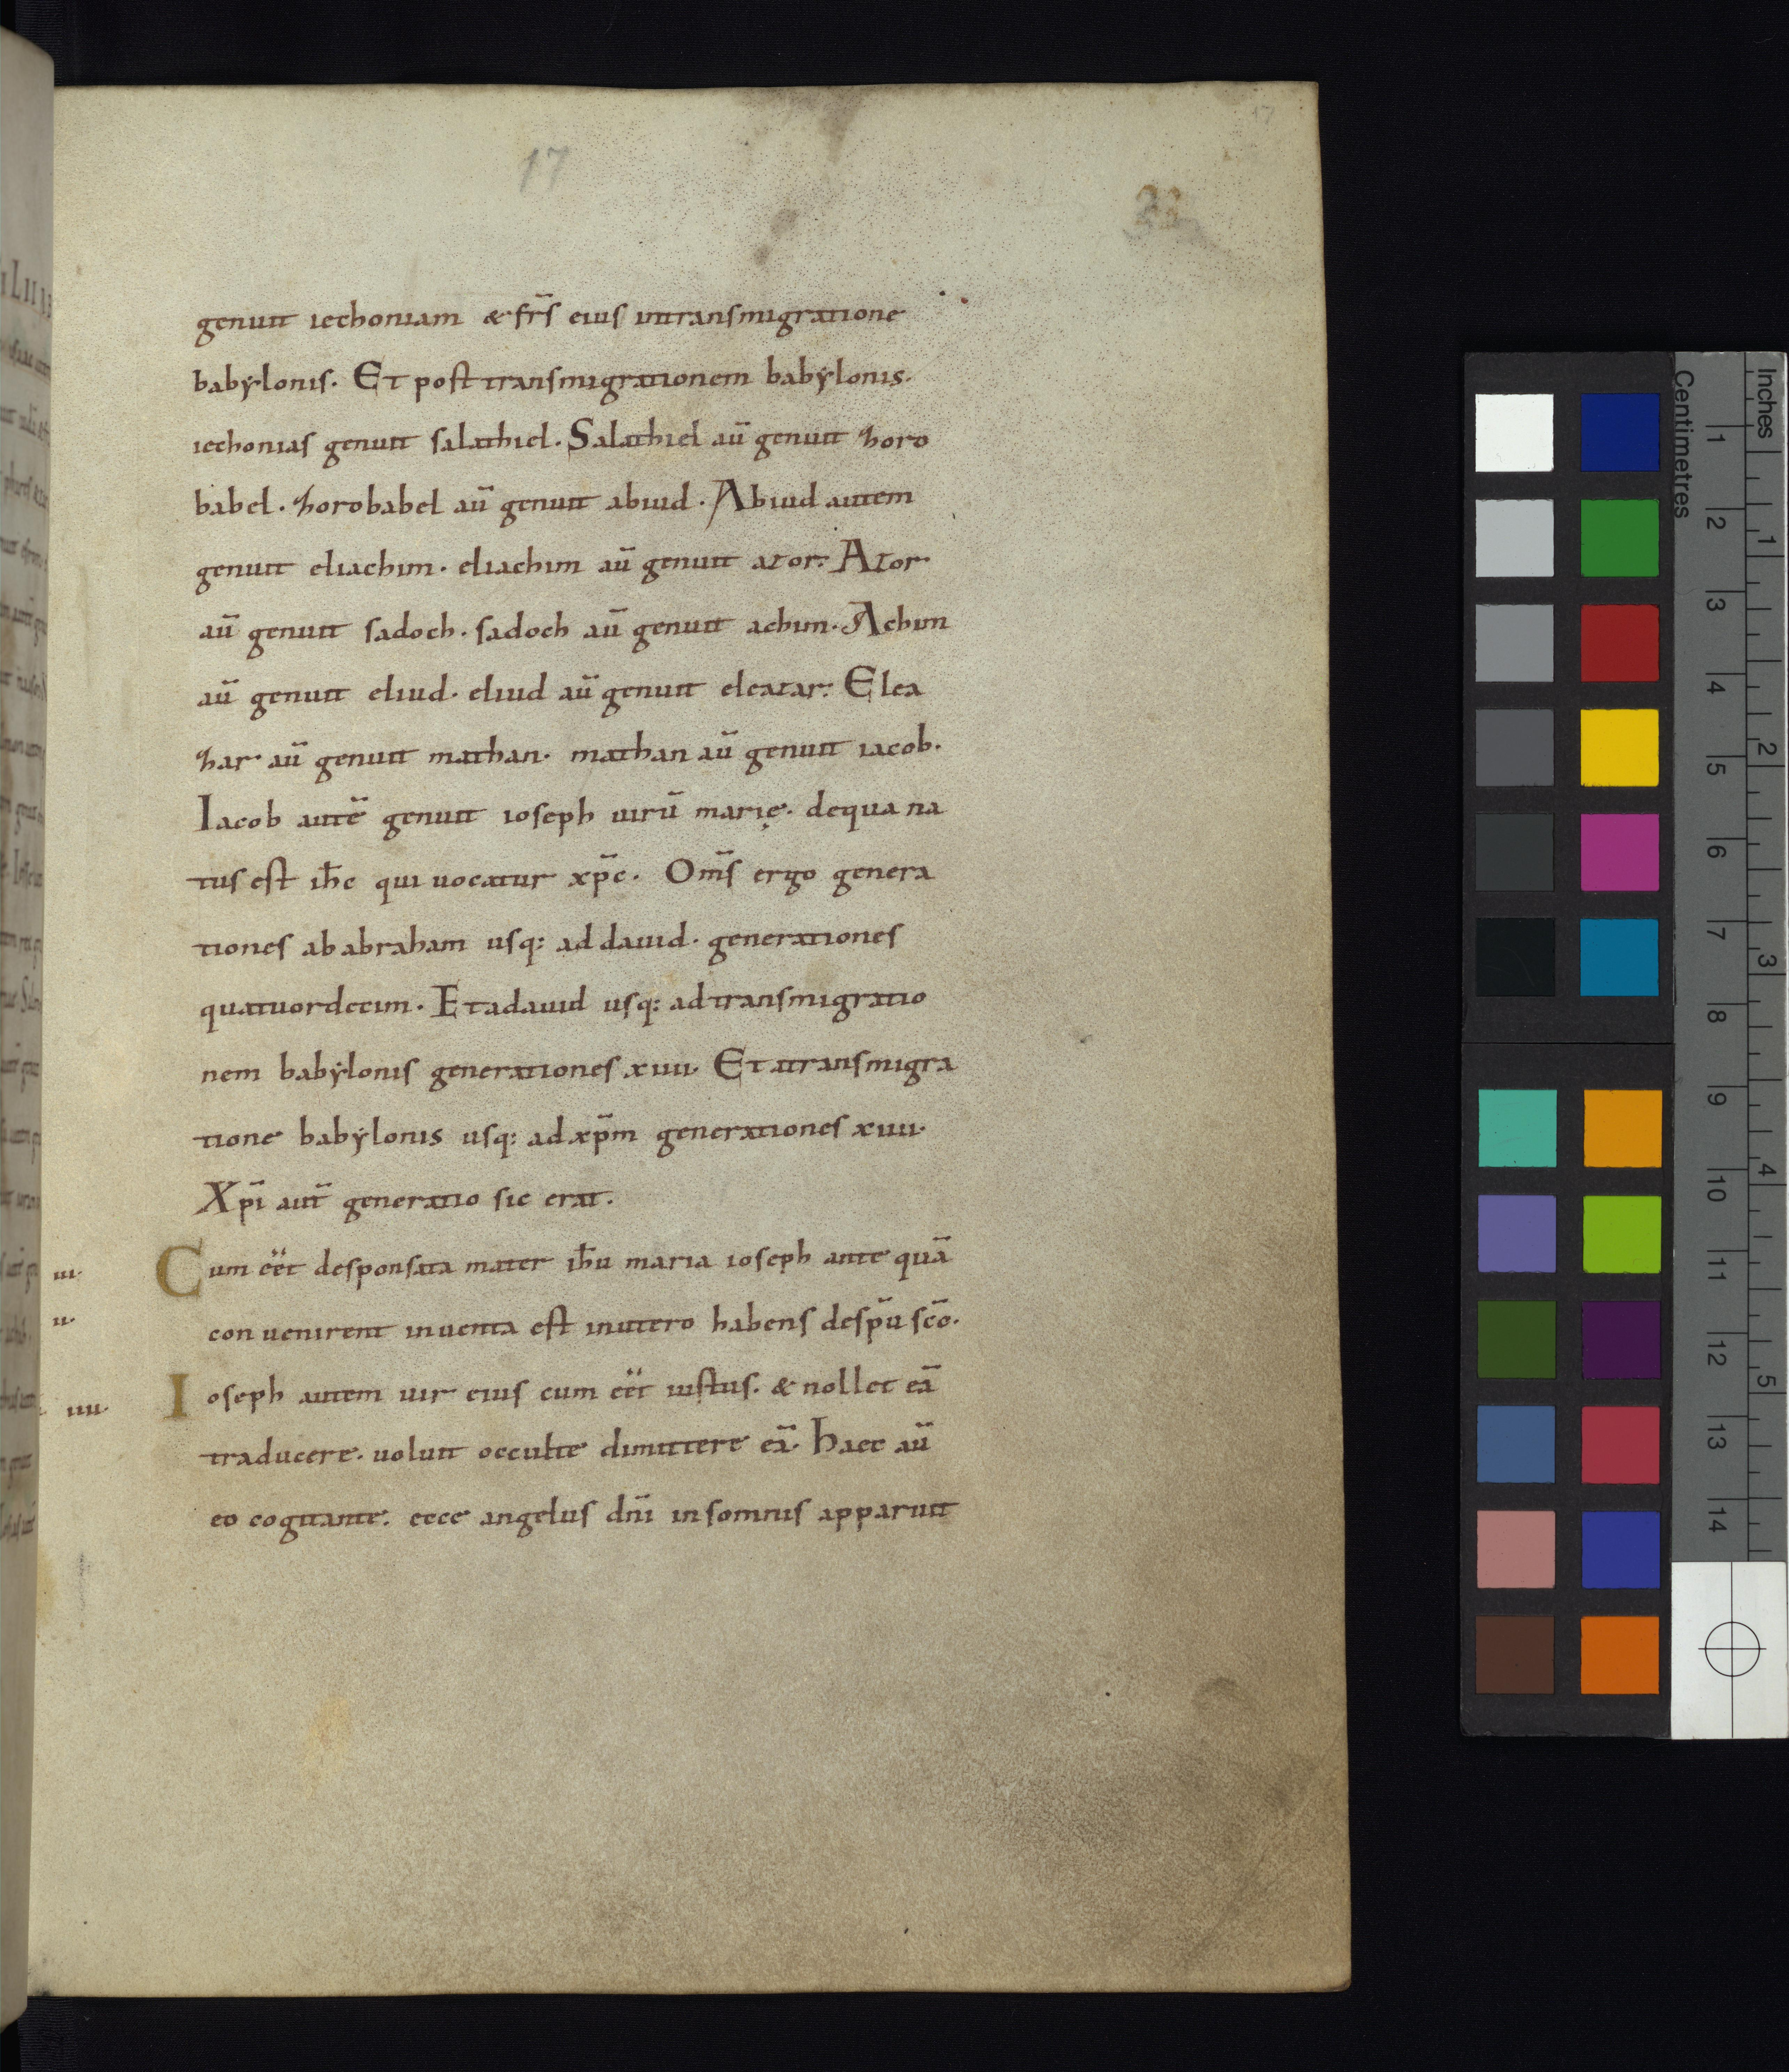 17
17
22
genuit iechoniam & fr̄s eius intransmigratione
babẏlonis. Et post transmigrationem babẏlonis.
iechonias genuit salathiel. Salathiel aū genuit zoro
babel. zorobabel aū genuit abiud. Abiud autem
genuit eliachim. eliachim aū genuit azor. Azor
aū genuit sadoch. sadoch aū genuit achim. Achim
aū genuit eliud. eliud aū genuit eleazar. Elea
zar aū genuit mathan. mathan aū genuit iacob.
Iacob autē genuit ioseph uirū marię. dequa na
tus est ih̄c qui uocatur xp̄c. Om̄s ergo genera
tiones ab abraham usq: ad dauid. generationes
quatuordecim. Et adauid usq: ad transmigratio
nem babẏlonis generationes xiiii. Et atransmigra
tione babẏlonis usq: ad xp̄m generationes xiiii.
Xp̄i aut̄ generatio sic erat.
iii.
Cum eēt desponsata mater ih̄u maria ioseph ante quā
u.
conuenirent inuenta est inutero habens desp̄u sc̄o.
iiii.
Ioseph autem uir eius cum eēt iustus. & nollet eā
traducere. uoluit occulte dimittere eā. Haec aū
eo cogitante. ecce angelus dn̄i in somnis apparuit
Centimetres
Inches
1
2
3
4
5
6
7
8
9
10
11
12
13
14
1
2
3
4
5